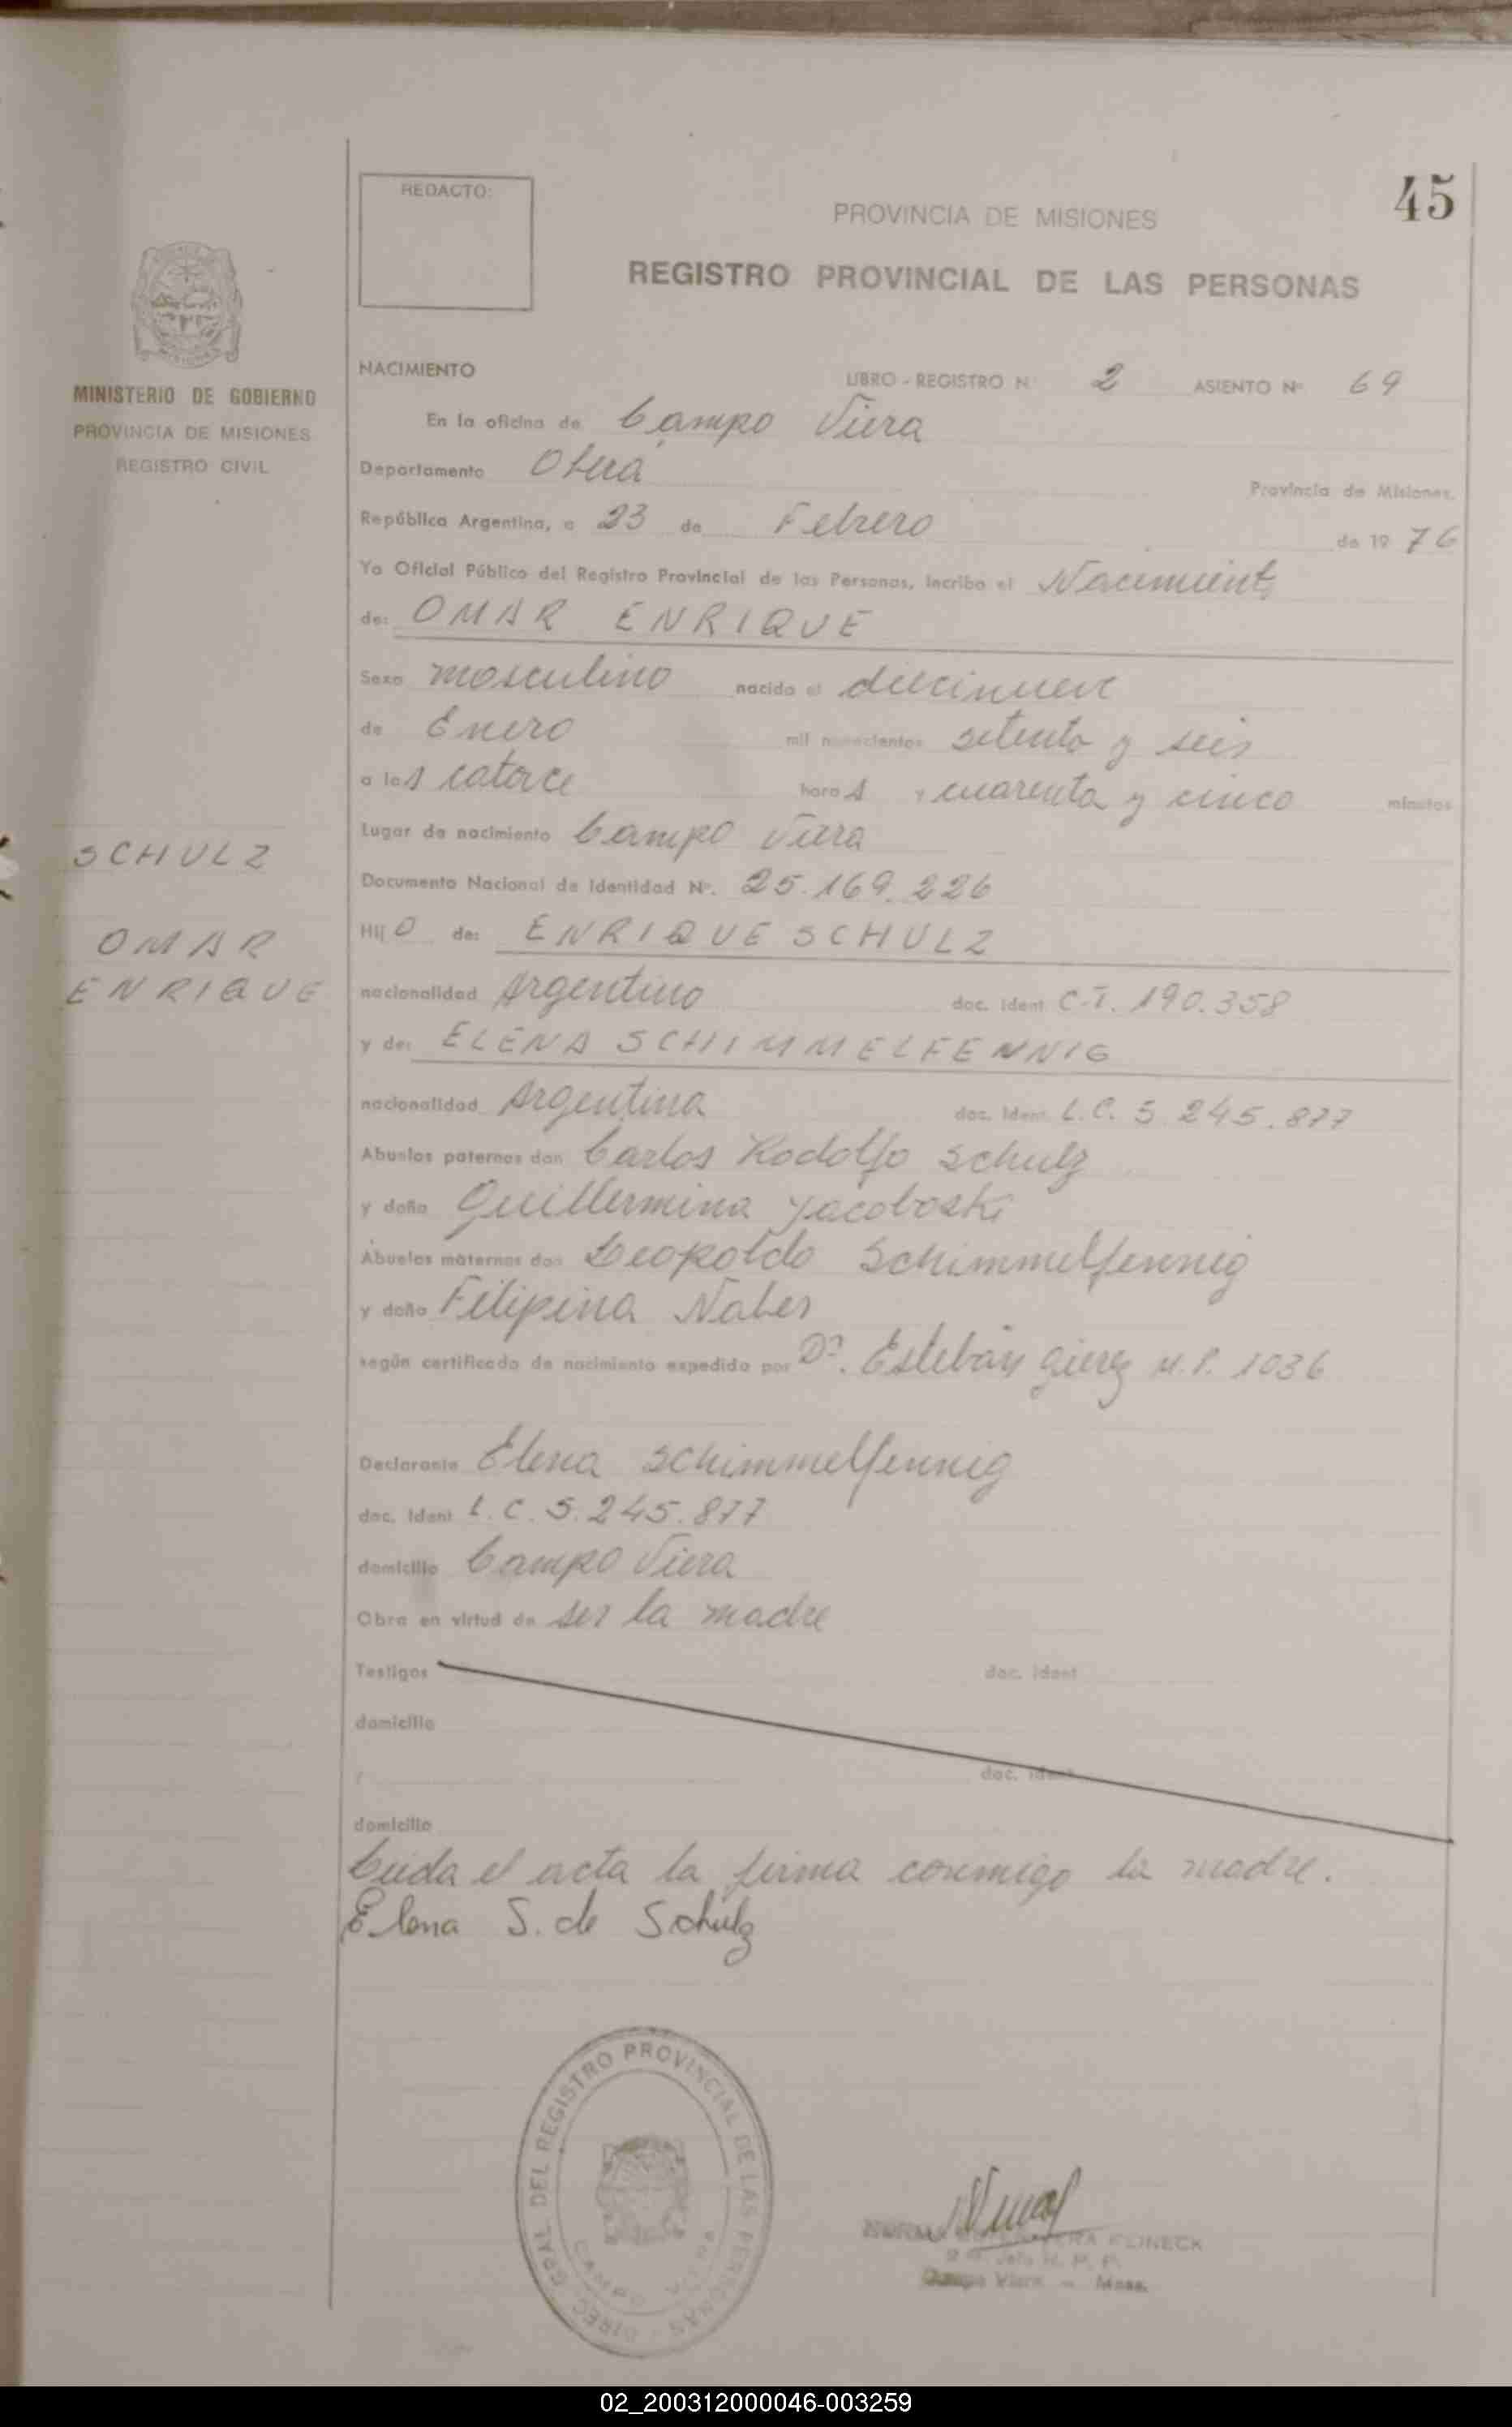 45
REDACTO:
PROVINCIA DE MISIONES
REGISTRO PROVINCIAL DE LAS PERSONAS
MINISTERIO DE GOBIERNO
PROVINCIA DE MISIONES
REGISTRO CIVIL
NACIMIENTO LIBRO - REGISTRO N° 2 ASIENTO N° 69
En la oficina de Campo Viera
Departamento Oberá Provincia de Misiones,
República Argentina, a 23 de Febrero de 19 76
Yo Oficial Público del Registro Provincial de las Personas, incribo el Nacimiento
de: OMAR ENRIQUE
Sexo masculino nacido el diecinueve
de Enero mil novecientos setenta y seis
a las catorce horas y cuarenta y cinco minutos
Lugar de nacimiento Campo Viera
Documento Nacional de Identidad N°. 25.169.226
SCHULZ
OMAR
ENRIQUE
Hijo de: ENRIQUE SCHULZ
nacionalidad Argentino doc. ident C.I. 190.358
y de: ELENA SCHIMMELFENNIG
nacionalidad Argentina doc. ident. L.C. 5.245.877
Abuelos paternos don Carlos Rodolfo Schulz
y doña Guillermina Yacoboski
Abuelos maternos don Leopoldo Schimmelfennig
y doña Filipina Naber
según certificado de nacimiento expedido por Dr. Esteban M.P. 1036
Declarante Elena Schimmelfennig
doc. ident L.C. 5.245.877
domicilio Campo Viera
Obra en virtud de ser la madre
Testigos doc. ident
domicilio
y doc. ident
domicilio
Leida el acta la firma conmigo la madre.
Elena S. de Schulz
DIREC. GRAL. DEL REGISTRO PROVINCIAL DE LAS PERSONAS
CAMPO VIERA
NORMA
Campo Viera - Mnes.
02_200312000046-003259